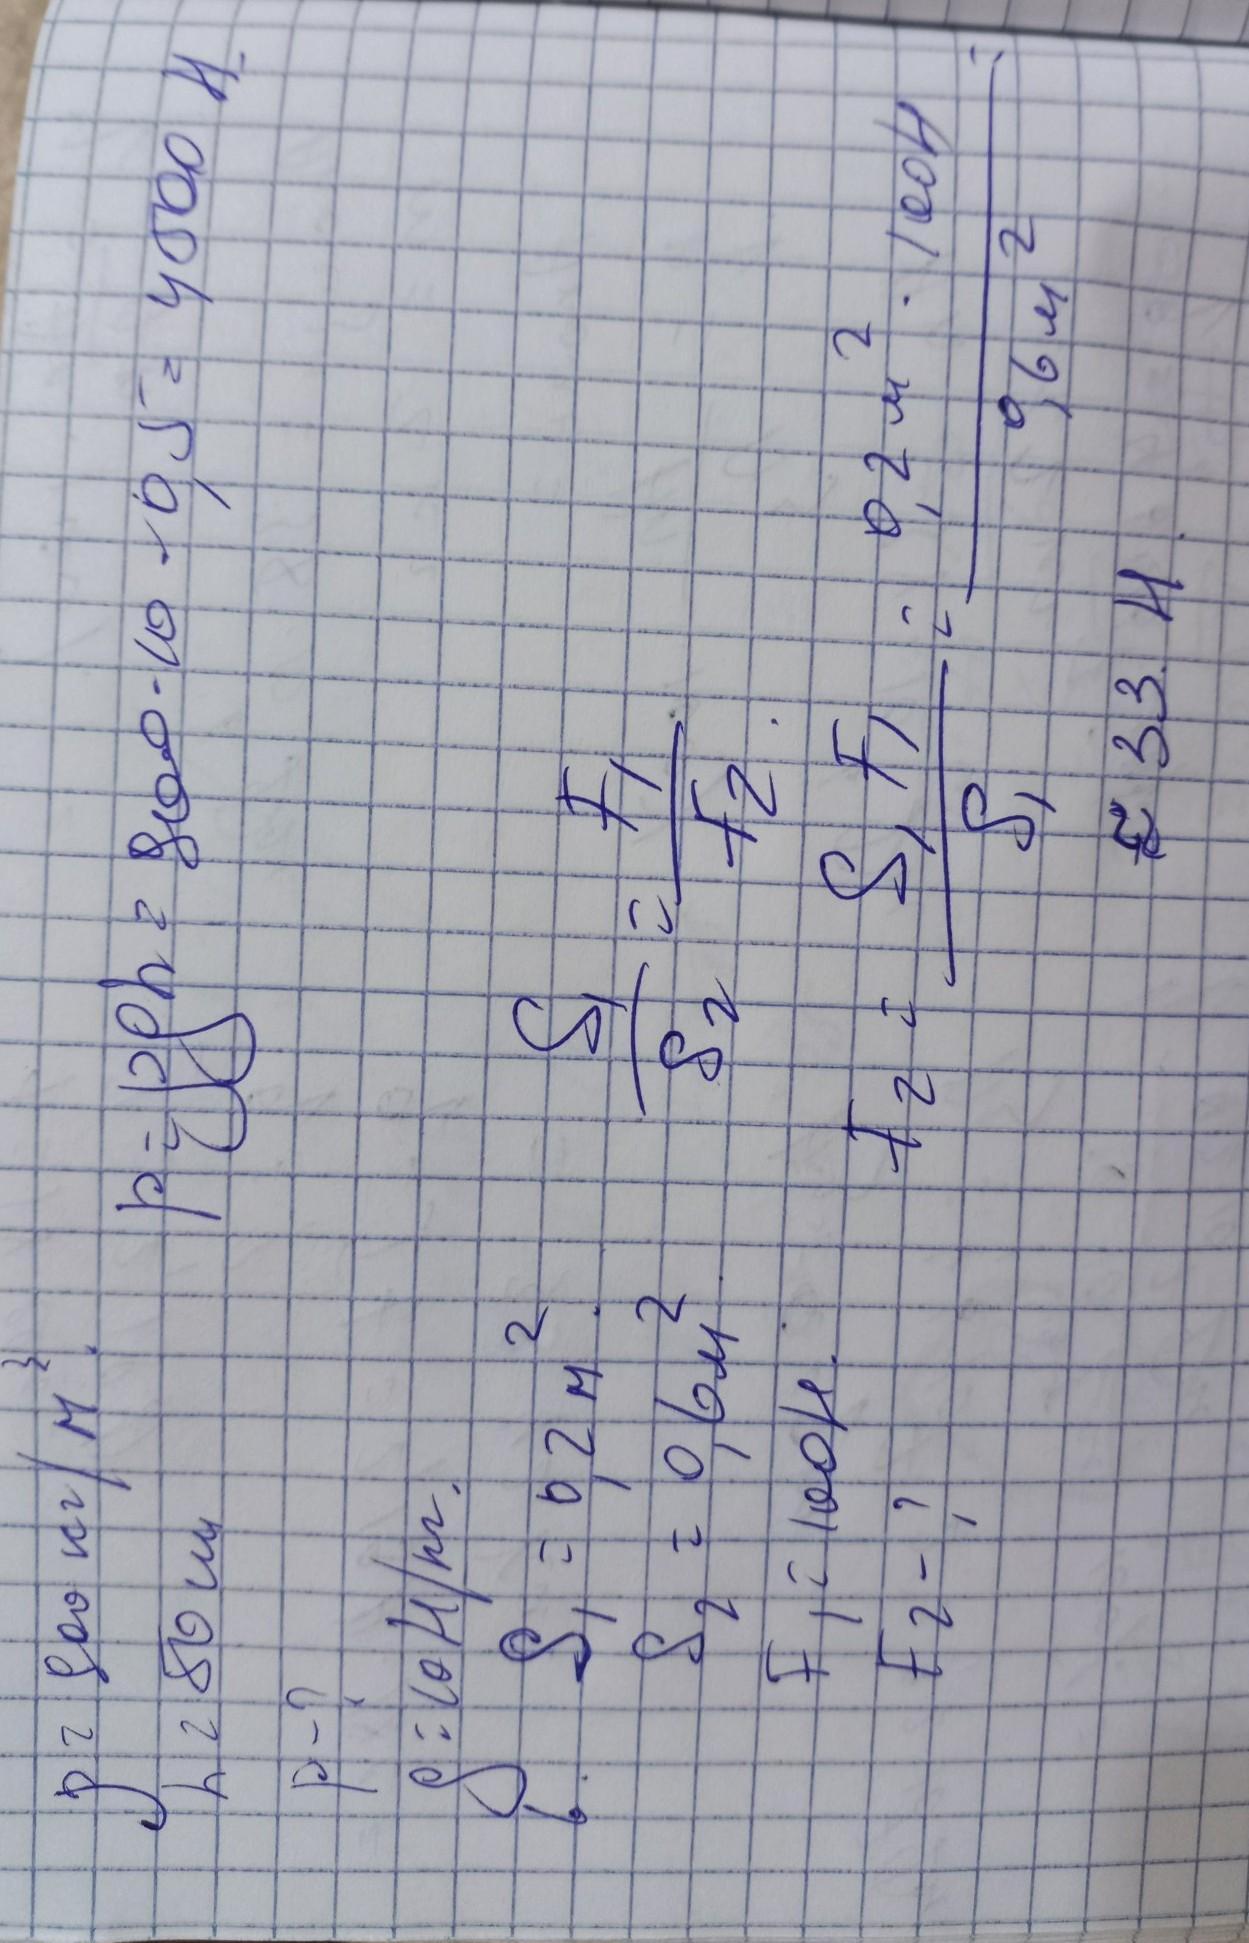 ρ = 800 кг/м³.
h = 50 см
p - ?
g = 10 Н/кг.
p = ρgh = 800 · 10 · 0,5 = 4000 Н.
S₁ = 0,2 м².
S₂ = 0,6 м²
F₁ = 100 Н.
F₂ - ?
S₁/S₂ = F₁/F₂.
F₂ = S₁F₁/S₁ = 0,2 м² · 100 Н/0,6 м² =
≈ 33 Н.